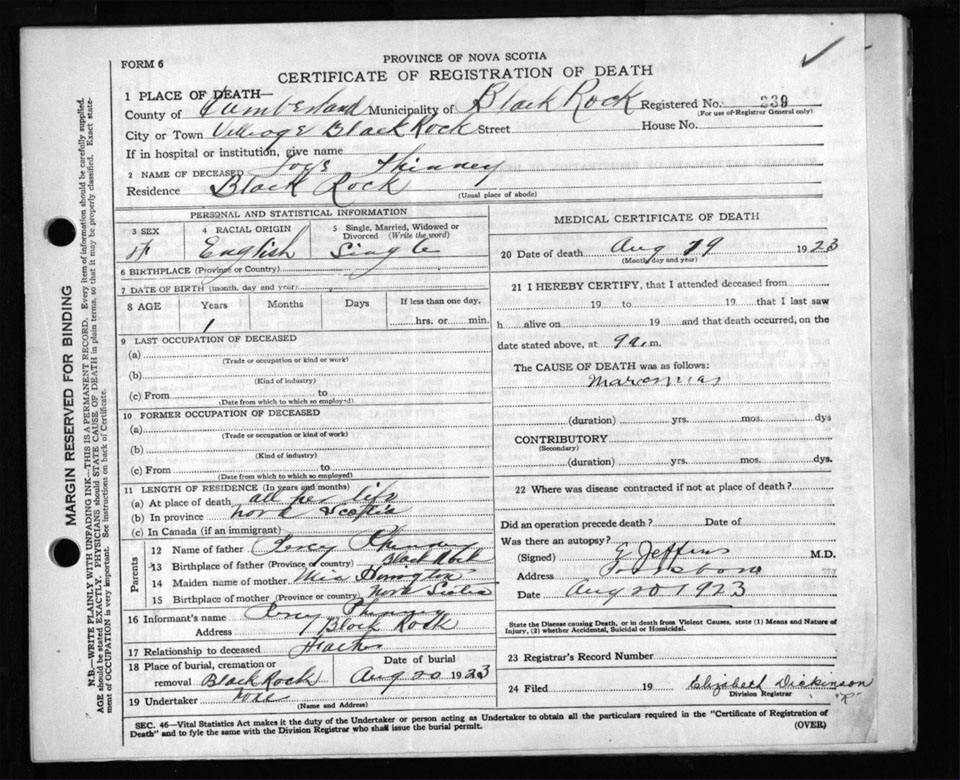 FORM 6
PROVINCE OF NOVA SCOTIA
CERTIFICATE OF REGISTRATION OF DEATH
1 PLACE OF DEATH—
County of Cumberland Municipality of Black Rock Registered No. 239
(For use of Registrar General only)
City or Town Village Black Rock Street House No.
If in hospital or institution, give name
2 NAME OF DECEASED Phinney
Residence Black Rock
(Usual place of abode)
PERSONAL AND STATISTICAL INFORMATION
3 SEX 4 RACIAL ORIGIN 5 Single, Married, Widowed or Divorced (Write the word)
F English Single
6 BIRTHPLACE (Province or Country)
7 DATE OF BIRTH (month, day and year)
8 AGE Years Months Days If less than one day,
1 hrs. or min.
9 LAST OCCUPATION OF DECEASED
(a)
(Trade or occupation or kind or work)
(b)
(Kind of industry)
(c) From to
(Date from which to which so employed)
10 FORMER OCCUPATION OF DECEASED
(a)
(Trade or occupation or kind of work)
(b)
(Kind of industry)
(c) From to
(Date from which to which so employed)
11 LENGTH OF RESIDENCE (In years and months)
(a) At place of death all her life
(b) In province nova scotia
(c) In Canada (if an immigrant)
Parents
12 Name of father Percy Phinney
13 Birthplace of father (Province or country) Black Rock
14 Maiden name of mother
15 Birthplace of mother (Province or country) Nova Scotia
16 Informant's name Percy Phinney
Address Black Rock
17 Relationship to deceased
18 Place of burial, cremation or removal Black Rock
Date of burial Aug 20 1923
19 Undertaker
(Name and Address)
MEDICAL CERTIFICATE OF DEATH
20 Date of death Aug 19 1923
(Month, day and year)
21 I HEREBY CERTIFY, that I attended deceased from
19 to 19 that I last saw
h alive on 19 and that death occurred, on the
date stated above, at 9 a.m.
The CAUSE OF DEATH was as follows:
(duration) yrs. mos. dys
CONTRIBUTORY
(Secondary)
(duration) yrs. mos. dys.
22 Where was disease contracted if not at place of death?
Did an operation precede death? Date of
Was there an autopsy?
(Signed) M.D.
Address
Date Aug 20 1923
State the Disease causing Death, or in death from Violent Causes, state (1) Means and Nature of
Injury, (2) whether Accidental, Suicidal or Homicidal.
23 Registrar's Record Number
24 Filed 19 Elizabeth Dickinson
Division Registrar
SEC. 46—Vital Statistics Act makes it the duty of the Undertaker or person acting as Undertaker to obtain all the particulars required in the "Certificate of Registration of
Death" and to fyle the same with the Division Registrar who shall issue the burial permit.
(OVER)
MARGIN RESERVED FOR BINDING
N.B.—WRITE PLAINLY WITH UNFADING INK—THIS IS A PERMANENT RECORD. Every item of information should be carefully supplied.
AGE should be stated EXACTLY. PHYSICIANS should STATE CAUSE OF DEATH in plain terms, so that it may be properly classified. Exact state-
ment of OCCUPATION is very important. See instructions on back of Certificate.